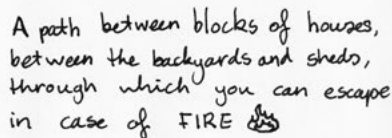 A path between blocks of houses,
between the backyards and sheds,
through which you can escape
in case of FIRE